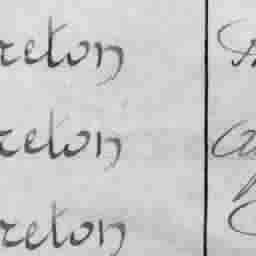 reton
reton
reton